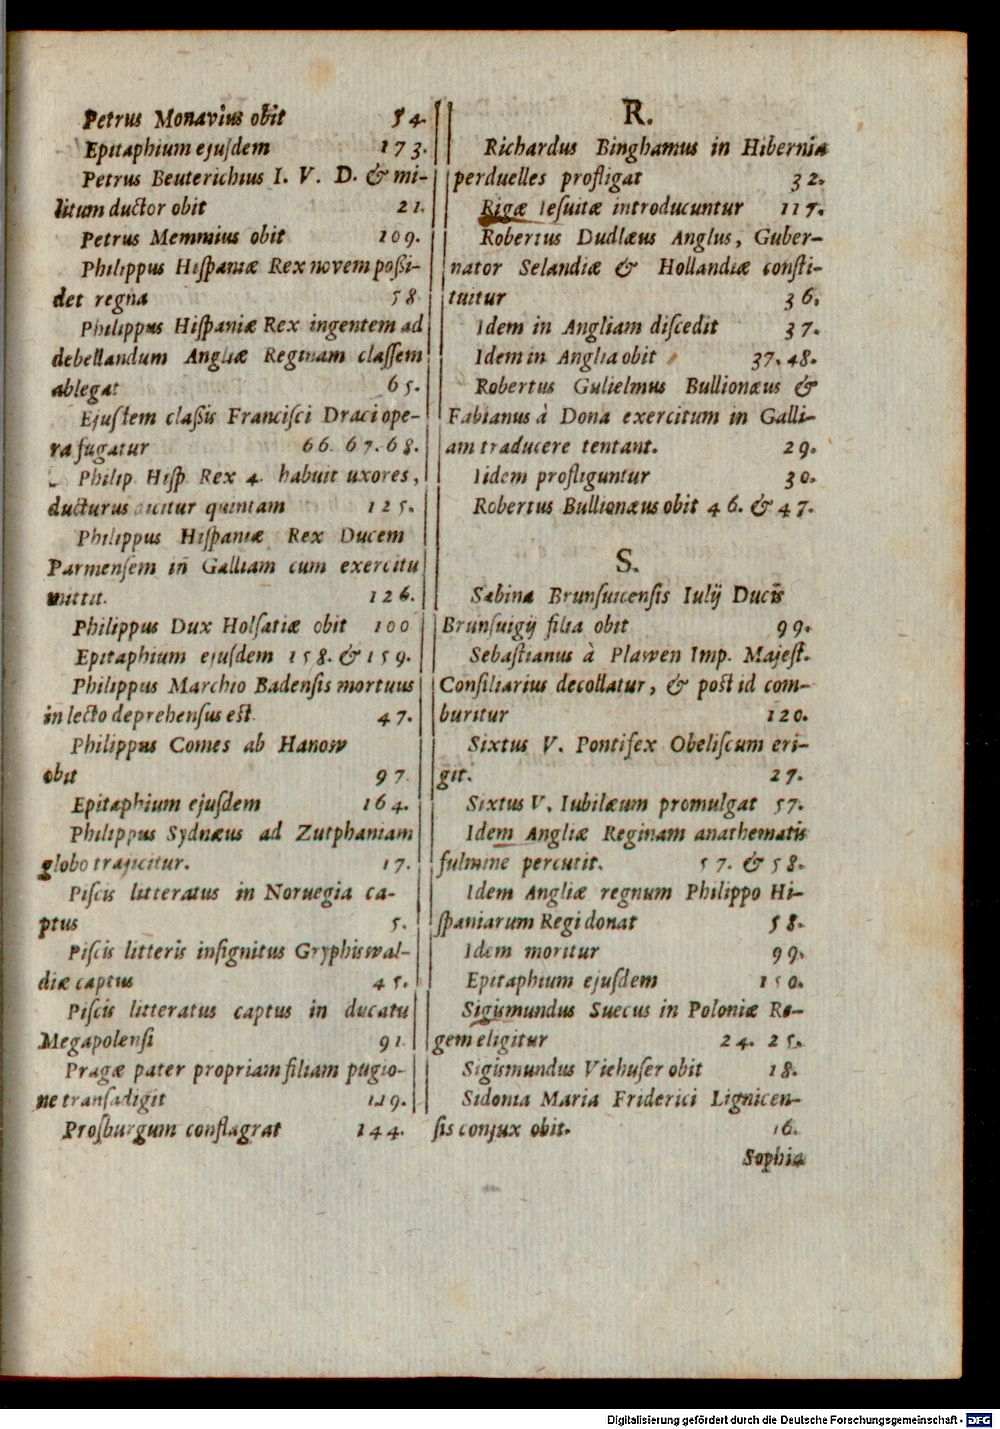 Petrus Monavius obit 54.
Epitaphium ejuſdem 173.
Petrus Beuterichius I. V. D. & mi-
litum ductor obit 21.
Petrus Memmius obit 109.
Philippus Hiſpaniæ Rex novem poßi-
det regna 58
Philippus Hiſpaniæ Rex ingentem ad
debellandum Angliæ Reginam claſſem
ablegat 65.
Ejuſdem claßis Franciſci Draci ope-
ra fugatur 66. 67. 68.
Philip. Hiſp. Rex 4. habuit uxores,
ducturus dicitur quintam 125.
Philippus Hiſpaniæ Rex Ducem
Parmenſem in Galliam cum exercitu
mittit. 126.
Philippus Dux Holſatiæ obit 100
Epitaphium ejuſdem 158. & 159.
Philippus Marchio Badenſis mortuus
in lecto deprehenſus est 47.
Philippus Comes ab Hanow
obit 97.
Epitaphium ejuſdem 164.
Philippus Sydnæus ad Zutphaniam
globo trajicitur. 17.
Piſcis litteratus in Noruegia ca-
ptus 5.
Piſcis litteris inſignitus Gryphiswal-
diæ captus 45.
Piſcis litteratus captus in ducatu
Megapolenſi 91.
Pragæ pater propriam filiam pugio-
ne transadigit 119.
Prosburgum conflagrat 144.
R.
Richardus Binghamus in Hibernia
perduelles profligat 32.
Rigæ Ieſuitæ introducuntur 117.
Robertus Dudlæus Anglus, Guber-
nator Selandiæ & Hollandiæ conſti-
tuitur 36.
Idem in Angliam diſcedit 37.
Idem in Anglia obit 37. 48.
Robertus Gulielmus Bullionæus &
Fabianus à Dona exercitum in Galli-
am traducere tentant. 29.
Iidem profliguntur 30.
Robertus Bullionæus obit 46. & 47.
S.
Sabina Brunſuicenſis Iulij Ducis
Brunſuigij filia obit 99.
Sebaſtianus à Plawen Imp. Majeſt.
Conſiliarius decollatur, & post id com-
buritur 120.
Sixtus V. Pontifex Obeliſcum eri-
git. 27.
Sixtus V. Iubilæum promulgat 57.
Idem Angliæ Reginam anathematis
fulmine percutit. 57. & 58.
Idem Angliæ regnum Philippo Hi-
ſpaniarum Regi donat 58.
Idem moritur 99.
Epitaphium ejuſdem 150.
Sigismundus Suecus in Poloniæ Re-
gem eligitur 24. 25.
Sigismundus Viehuſer obit 18.
Sidonia Maria Friderici Lignicen-
ſis conjux obit. 16.
Sophia
Digitalisierung gefördert durch die Deutsche Forschungsgemeinschaft - DFG